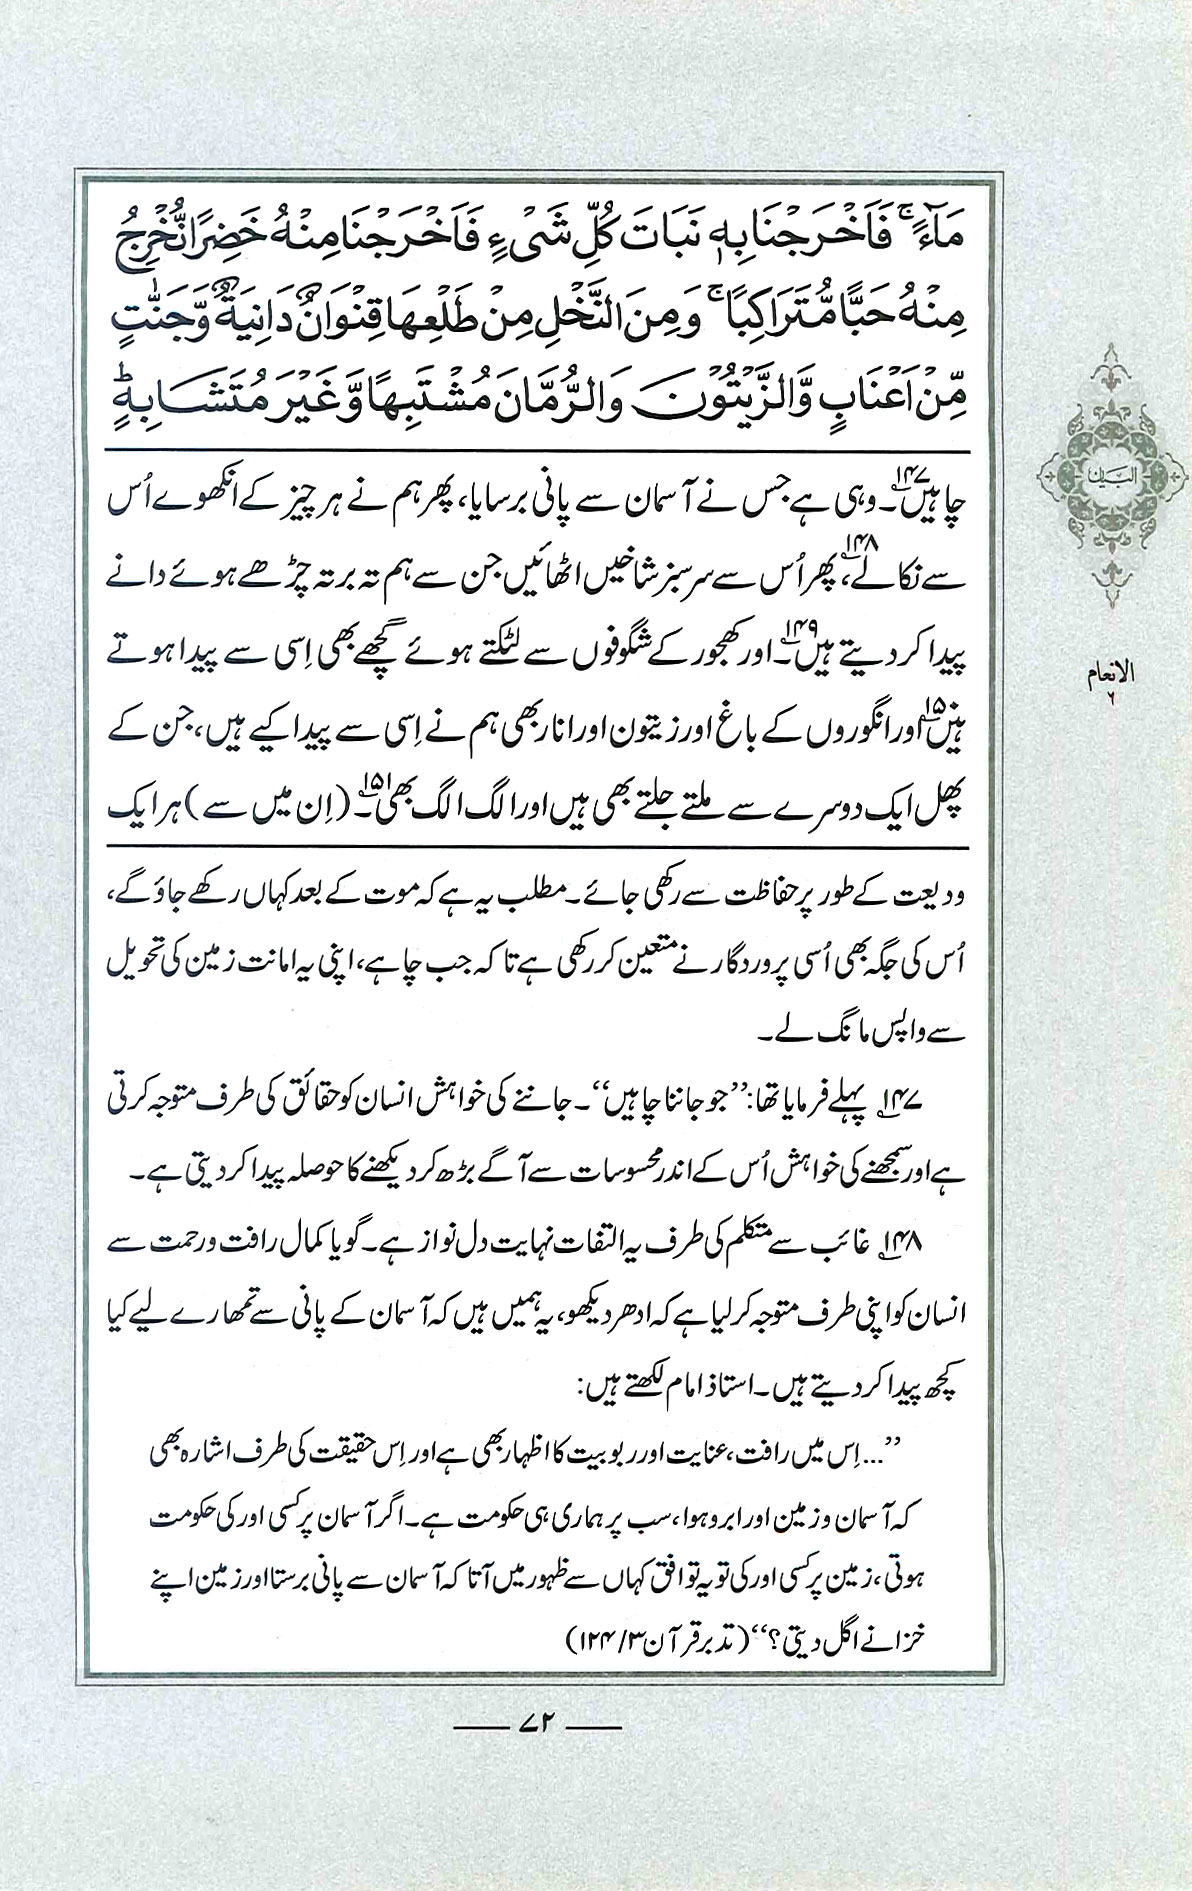 مَآءً ۚ فَاَخْرَجْنَا بِهٖ نَبَاتَ كُلِّ شَیْءٍ فَاَخْرَجْنَا مِنْهُ خَضِرًا نُّخْرِجُ
مِنْهُ حَبًّا مُّتَرَاكِبًا ۚ وَمِنَ النَّخْلِ مِنْ طَلْعِهَا قِنْوَانٌ دَانِيَةٌ وَّجَنّٰتٍ
مِّنْ اَعْنَابٍ وَّالزَّيْتُوْنَ وَالرُّمَّانَ مُشْتَبِهًا وَّغَيْرَ مُتَشَابِهٍ ؕ
چاہیں۱۴۷۔ وہی ہے جس نے آسمان سے پانی برسایا، پھر ہم نے ہر چیز کے انکھوے اُس
سے نکالے۱۴۸، پھر اُس سے سرسبز شاخیں اٹھائیں جن سے ہم تہ بر تہ چڑھے ہوئے دانے
پیدا کر دیتے ہیں۱۴۹۔ اور کھجور کے شگوفوں سے لٹکتے ہوئے گچھے بھی اِسی سے پیدا ہوتے
ہیں۱۵۰ اور انگوروں کے باغ اور زیتون اور انار بھی ہم نے اِسی سے پیدا کیے ہیں، جن کے
پھل ایک دوسرے سے ملتے جلتے بھی ہیں اور الگ الگ بھی۱۵۱۔ (اِن میں سے) ہر ایک
ودیعت کے طور پر حفاظت سے رکھی جائے۔ مطلب یہ ہے کہ موت کے بعد کہاں رکھے جاؤ گے،
اُس کی جگہ بھی اُسی پروردگار نے متعین کر رکھی ہے تاکہ جب چاہے، اپنی یہ امانت زمین کی تحویل
سے واپس مانگ لے۔
۱۴۷ پہلے فرمایا تھا: ”جو جاننا چاہیں“۔ جاننے کی خواہش انسان کو حقائق کی طرف متوجہ کرتی
ہے اور سمجھنے کی خواہش اُس کے اندر محسوسات سے آگے بڑھ کر دیکھنے کا حوصلہ پیدا کر دیتی ہے۔
۱۴۸ غائب سے متکلم کی طرف یہ التفات نہایت دل نواز ہے۔ گویا کمال رافت و رحمت سے
انسان کو اپنی طرف متوجہ کر لیا ہے کہ ادھر دیکھو، یہ ہمیں ہیں کہ آسمان کے پانی سے تمھارے لیے کیا
کچھ پیدا کر دیتے ہیں۔ استاذ امام لکھتے ہیں:
”...اِس میں رافت، عنایت اور ربوبیت کا اظہار بھی ہے اور اِس حقیقت کی طرف اشارہ بھی
کہ آسمان و زمین اور ابر و ہوا، سب پر ہماری ہی حکومت ہے۔ اگر آسمان پر کسی اور کی حکومت
ہوتی، زمین پر کسی اور کی تو یہ توافق کہاں سے ظہور میں آتا کہ آسمان سے پانی برستا اور زمین اپنے
خزانے اگل دیتی؟“ (تدبر قرآن ۳/ ۱۲۴)
البیان
الانعام
۶
۷۲